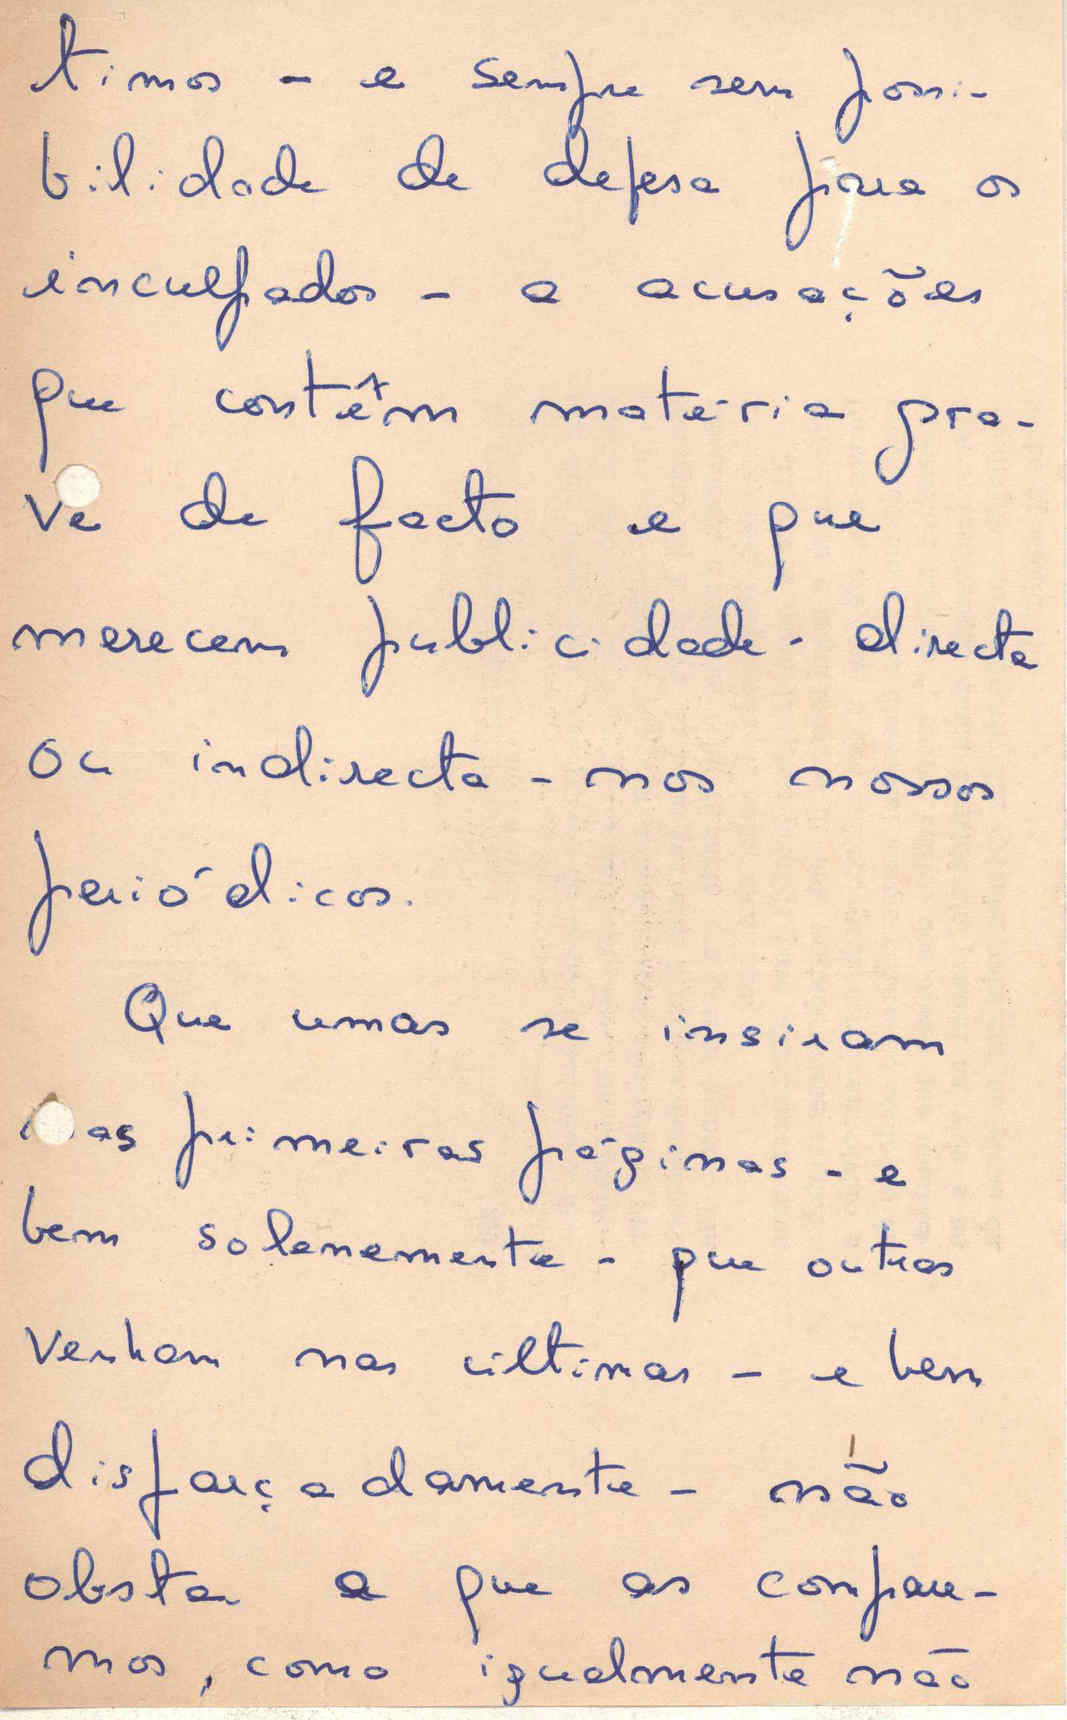 timos - e sempre sem possi-
bilidade de defesa para os
inculpados - a acusações
que contêm matéria gra-
ve de facto e que
merecem publicidade - directa
ou indirecta - nos nossos
periódicos.
Que umas se insiram
nas primeiras páginas - e
bem solenemente - que outras
venham nas últimas - e bem
disfarçadamente - não
obsta a que as compare-
mos, como igualmente não